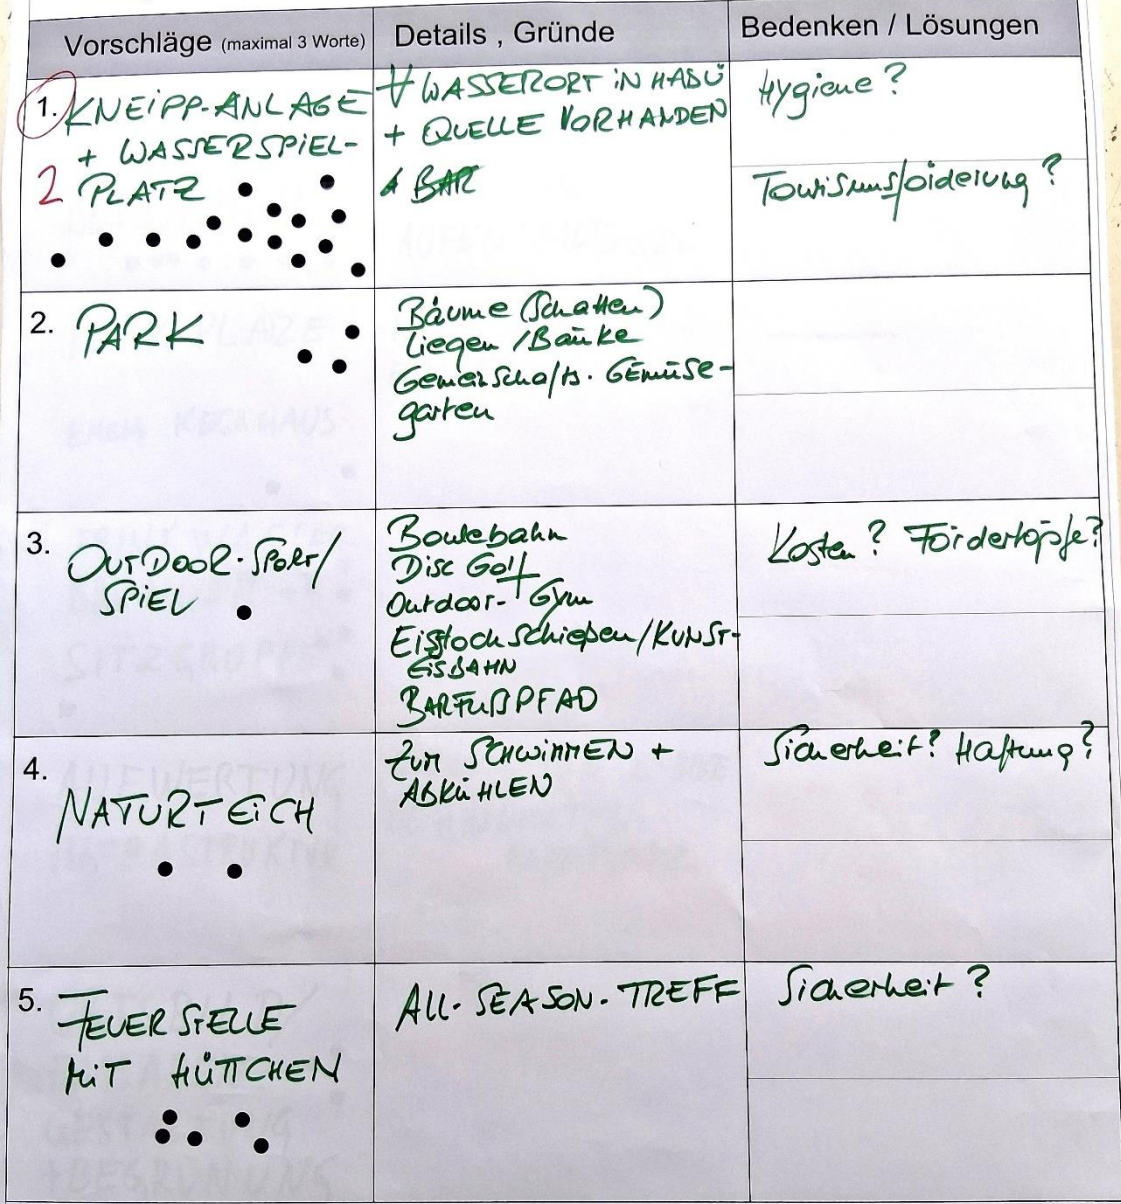 Vorschläge (maximal 3 Worte)
Details , Gründe
Bedenken / Lösungen
1. KNEIPP-ANLAGE
+ WASSERSPIEL-
2 PLATZ
∀ WASSERORT IN HABÜ
+ QUELLE VORHANDEN
BAR
Hygiene?
Tourismusförderung?
2. PARK
Bäume (Schatten)
Liegen / Bänke
Gemeinschafts-GEMÜSE-
garten
3. OUTDOOR-SPORT/
SPIEL
Boulebahn
Disc Golf
Outdoor-Gym
Eisstockschießen/KUNST-
EISBAHN
BARFUßPFAD
Kosten? Fördertöpfe?
4.
NATURTEICH
ZUM SCHWIMMEN +
ABKÜHLEN
Sicherheit? Haftung?
5. FEUERSTELLE
MIT HÜTTCHEN
ALL-SEASON-TREFF
Sicherheit?